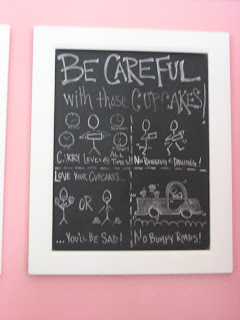 BE CAREFUL
with those CUPCAKES!
CARRY LEVEL @ ALL TIMES!!
NO RUNNING & DANCING!
LOVE YOUR CUPCAKES...
OR
...YOU'LL BE SAD!
NO BUMPY ROADS!